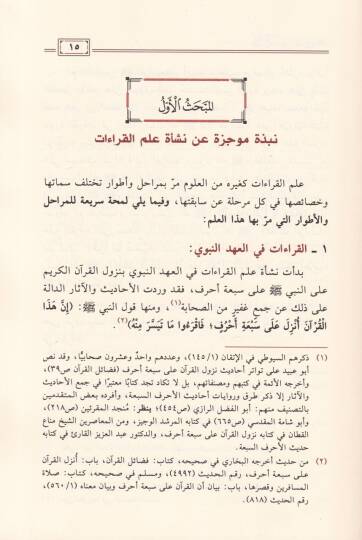 ١٥
المبحث الأول
نبذة موجزة عن نشأة علم القراءات
علم القراءات كغيره من العلوم مرّ بمراحل وأطوار تختلف سماتها
وخصائصها في كل مرحلة عن سابقتها، وفيما يلي لمحة سريعة للمراحل
والأطوار التي مرّ بها هذا العلم:
١ ـ القراءات في العهد النبوي:
بدأت نشأة علم القراءات في العهد النبوي بنزول القرآن الكريم
على النبي ﷺ على سبعة أحرف، فقد وردت الأحاديث والآثار الدالة
على ذلك عن جمع غفير من الصحابة(١)، ومنها قول النبي ﷺ: (إِنَّ هَذَا
الْقُرْآنَ أُنْزِلَ عَلَى سَبْعَةِ أَحْرُفٍ؛ فَاقْرَءُوا مَا تَيَسَّرَ مِنْهُ)(٢).
(١) ذكرهم السيوطي في الإتقان (١٤٥/١)، وعددهم واحدٌ وعشرون صحابيًّا، وقد نص
أبو عبيد على تواتر أحاديث نزول القرآن على سبعة أحرف (فضائل القرآن ص٣٩)،
وأخرجه الأئمة في كتبهم ومصنفاتهم، بل لا تكاد تجد كتابًا معتبرًا في جمع الأحاديث
والآثار إلا ذكر طرق وروايات أحاديث الأحرف السبعة، وأفرده بعض المتقدمين
بالتصنيف منهم: أبو الفضل الرازي (ص٤٥٤)؛ ينظر: مُنجد المقرئين (ص٢١٨)،
وأبو شامة المقدسي (ص٦٦٥) في كتابه المرشد الوجيز، ومن المعاصرين الشيخ مناع
القطان في كتابه نزول القرآن على سبعة أحرف، والدكتور عبد العزيز القارئ في كتابه
حديث الأحرف السبعة.
(٢) من حديث أخرجه البخاري في صحيحه، كتاب: فضائل القرآن، باب: أُنزل القرآن
على سبعة أحرف، رقم الحديث (٤٩٩٢)، ومسلم في صحيحه، كتاب: صلاة
المسافرين وقصرها، باب: بيان أن القرآن على سبعة أحرف وبيان معناه (٥٦٠/١)،
رقم الحديث (٨١٨).